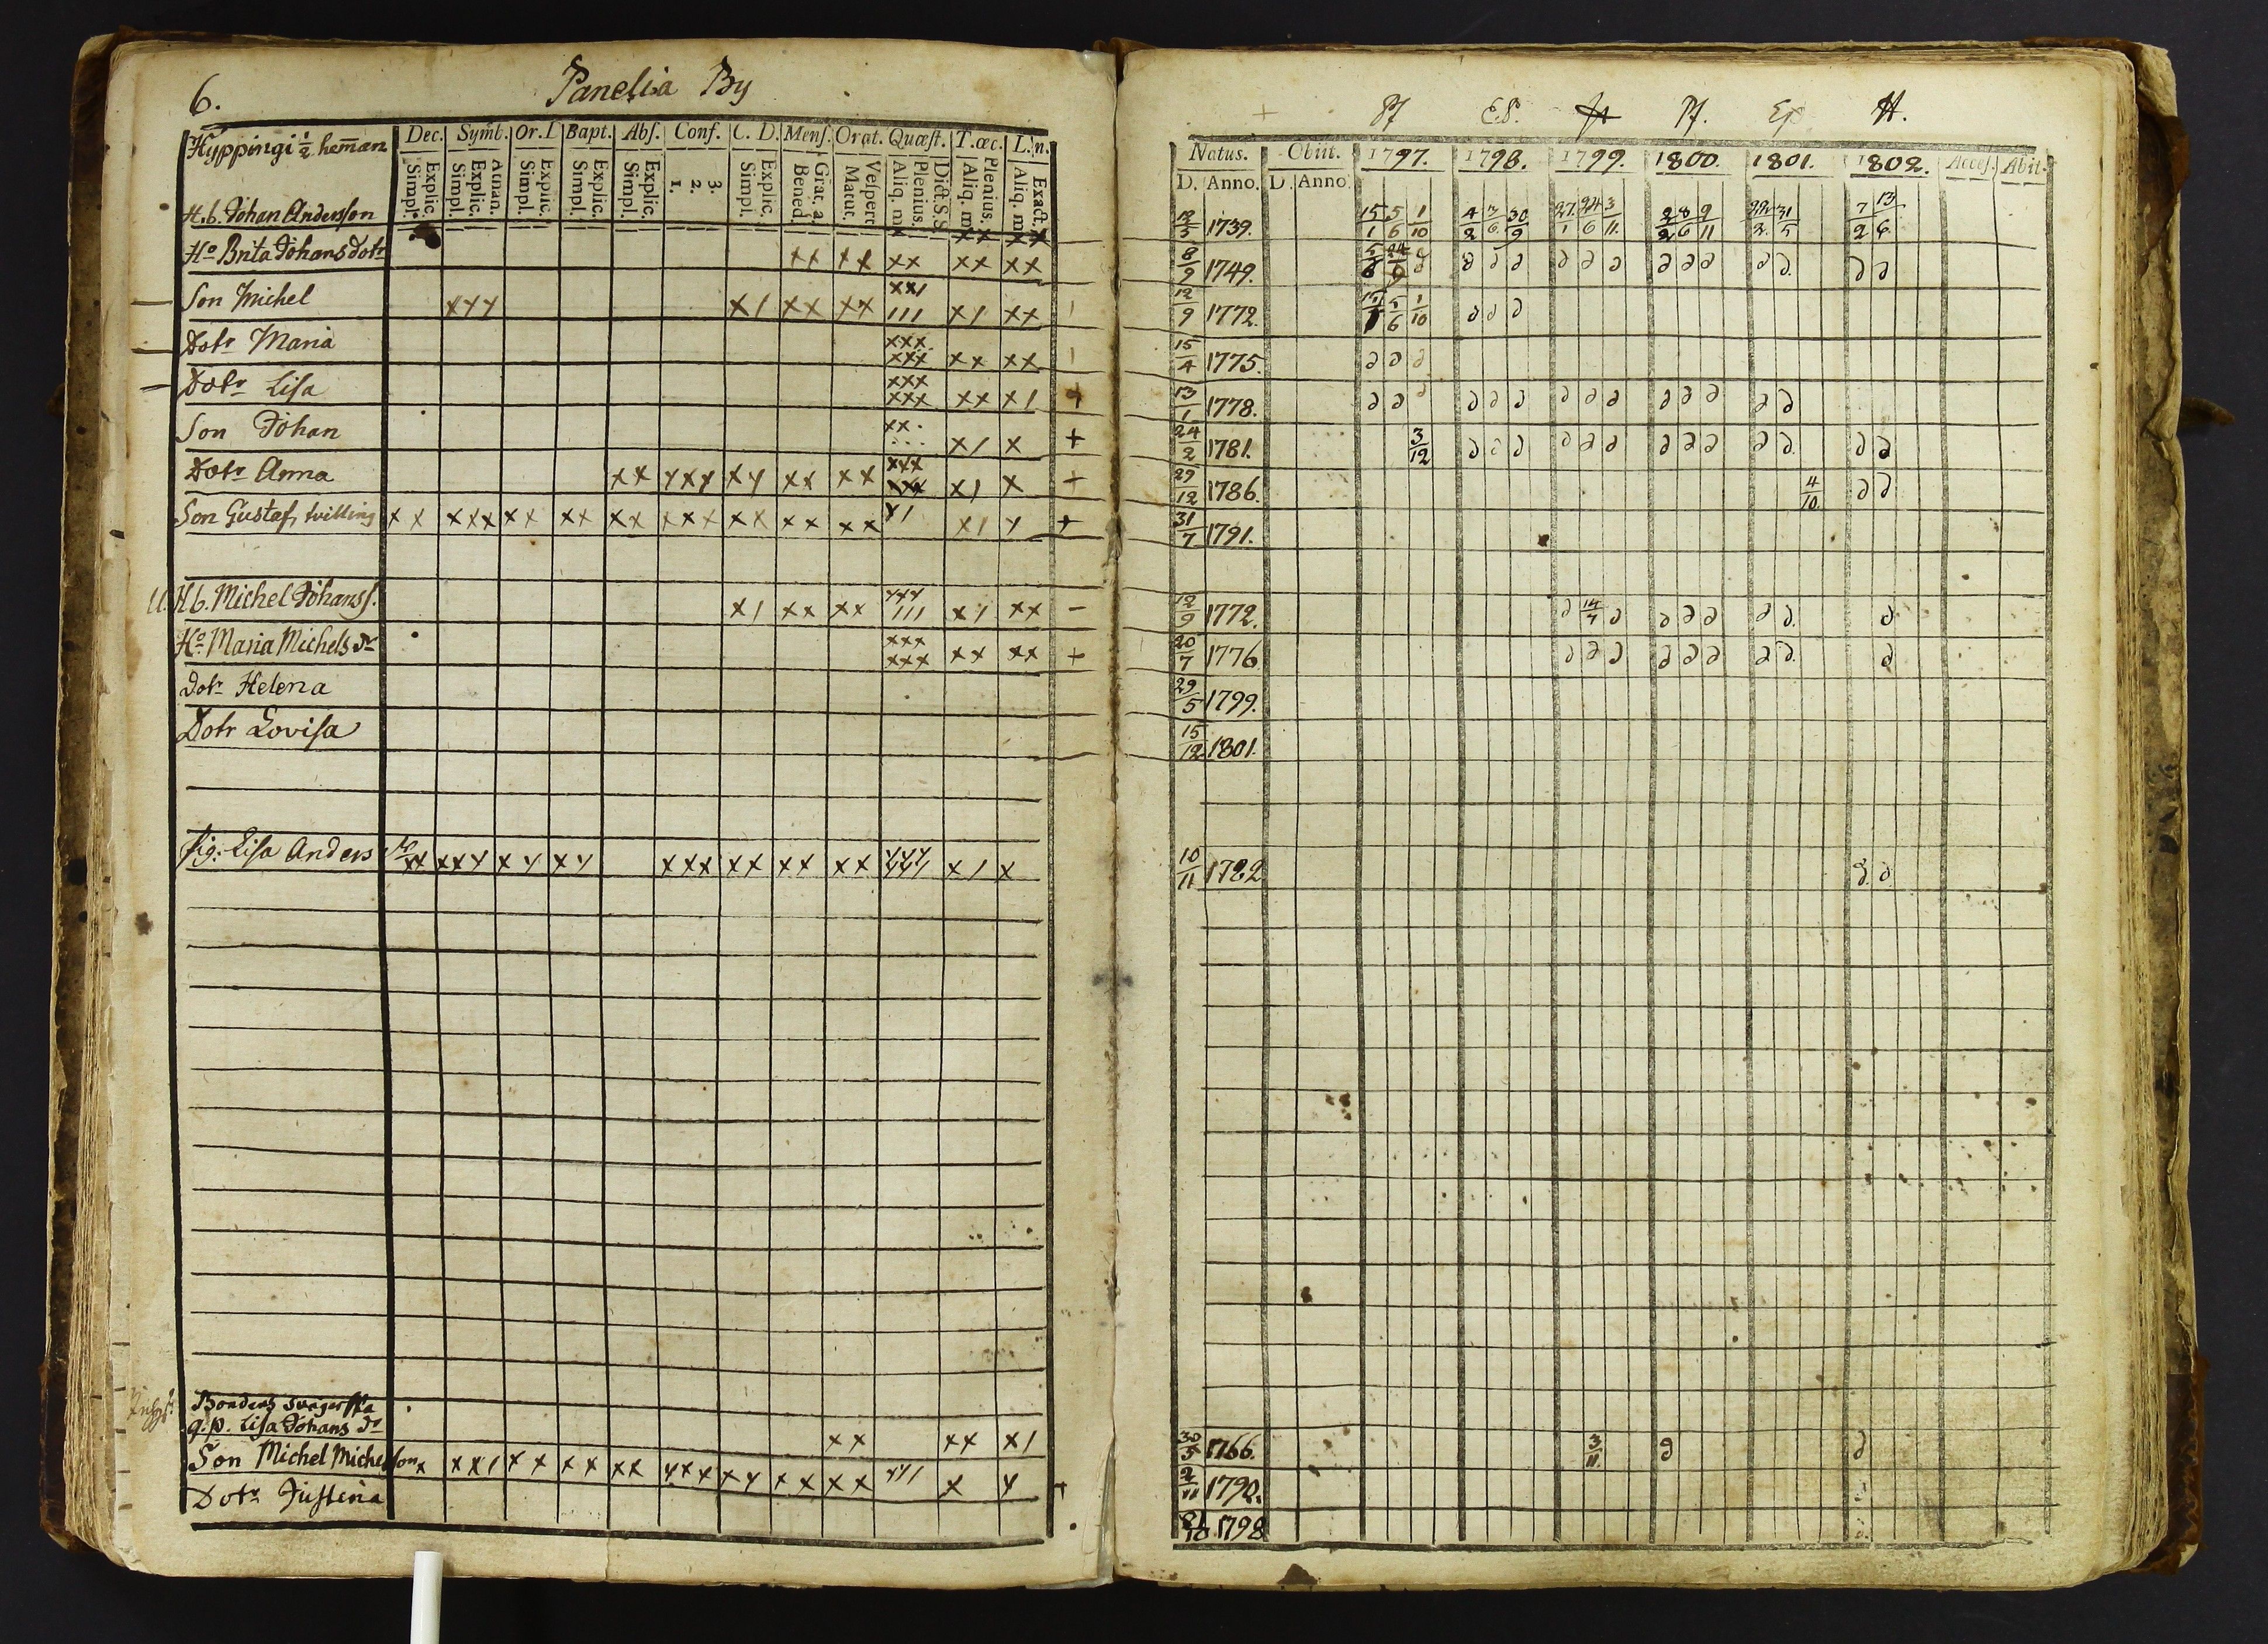 6. Panelia By
Hyppingi 1/2 heman
Dec. Symb. Or. D Bapt. Abs. Conf. C. D. Mens. Orat. Quæst. T.œc. L. n.
Explic. Simpl. Aman. Explic. Simpl. Explic. Simpl. Explic. Simpl. Explic. Simpl. 3. 2. 1. Explic. Simpl. Grat. a. Bened. Vespert. Matut. Dict.S.S. Plenius. Aliq. m Plenius. Aliq. m Exact. Aliq. m
H.b. Johan Andersson x xx xx
Ho Brita Johans dotr xx xx xx xx xx
Son Michel xxx x/ xx xx xx/ /// x/ xx
Dotr Maria xxx xxx xx xx
Dotr Lisa xxx xxx xx x/ +
Son Johan xx. x/ x +
Dotr Anna xx xxx xx xx xx xxx xxx x/ x +
Son Gustaf, tvilling xx xxx xx xx xx xxx xx xx xx x/ x/ x +
U. Hb. Michel Johanss. x/ xx xx xxx /// x/ xx –
Ho Maria Michels dr xxx xxx xx xx +
dotr Helena
Dotr Lovisa
Pig: Lisa Anders dr xx xxx xx xx xxx xx xx xx xxx x/ x
Bondens svägerska
g.p. Lisa Johans dr xx xx x/
Son Michel Michelsson x xx/ xx xx xx xxx xx xx xx xx/ x x +
Dotr Justina
Pf E.P. Pf. Ep H.
Natus. Obiit. 1797. 1798. 1799. 1800. 1801. 1802. Access. Abit.
D. Anno. D. Anno.
12/3 1739. 15/1 5/6 1/10 4/2 3/6 30/9 27/1 24/6 3/11 2/2 8/6 9/11 22/2 31/5 7/2 13/6
6/9 1749. 5/6 24/9 ∂ ∂ ∂ ∂ ∂ ∂ ∂ ∂ ∂ ∂ ∂ ∂ ∂ ∂
12/9 1772. 15/1 5/6 1/10 ∂ ∂ ∂
15/4 1775. ∂ ∂ ∂
13/1 1778. ∂ ∂ ∂ ∂ ∂ ∂ ∂ ∂ ∂ ∂ ∂ ∂ ∂ ∂
24/2 1781. 3/12 ∂ ∂ ∂ ∂ ∂ ∂ ∂ ∂ ∂ ∂ ∂ ∂ ∂
29/12 1786. 4/10. ∂ ∂
31/7 1791.
12/9 1772. ∂ 14/7 ∂ ∂ ∂ ∂ ∂ ∂. ∂
20/7 1776. ∂ ∂ ∂ ∂ ∂ ∂ ∂ ∂. ∂
29/5 1799.
15/12 1801.
10/11 1782 ∂. ∂
30/5 1766. 3/11. ∂ ∂
2/11 1790.
1798